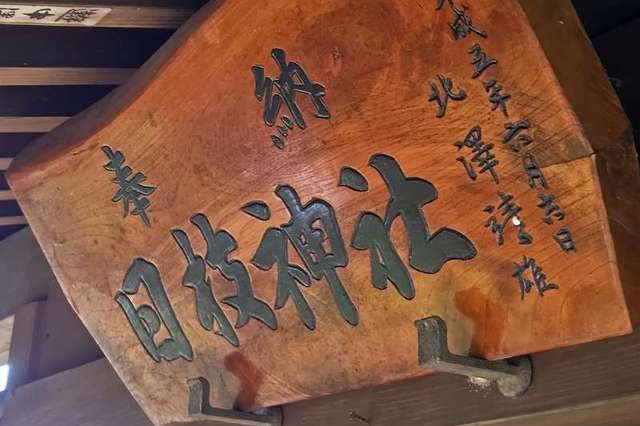 奉納
日枝神社
平成五年六月六日
北澤 雄